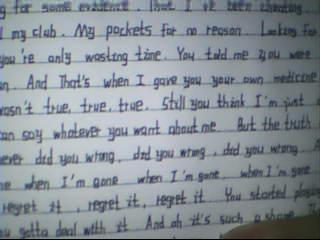 g for some evidence. That I've been cheating.
my club. My pockets for no reason. Looking for
you're only wasting time. You told me you were
n. And That's when I gave you your own medicine
wasn't true, true, true. Still you think I'm just a
can say whatever you want about me. But the truth
ever did you wrong, did you wrong, did you wrong.
me when I'm gone when I'm gone, when I'm gone
regret it, regret it, regret it. You started playing
ou gotta deal with it. And oh it's such a shame.